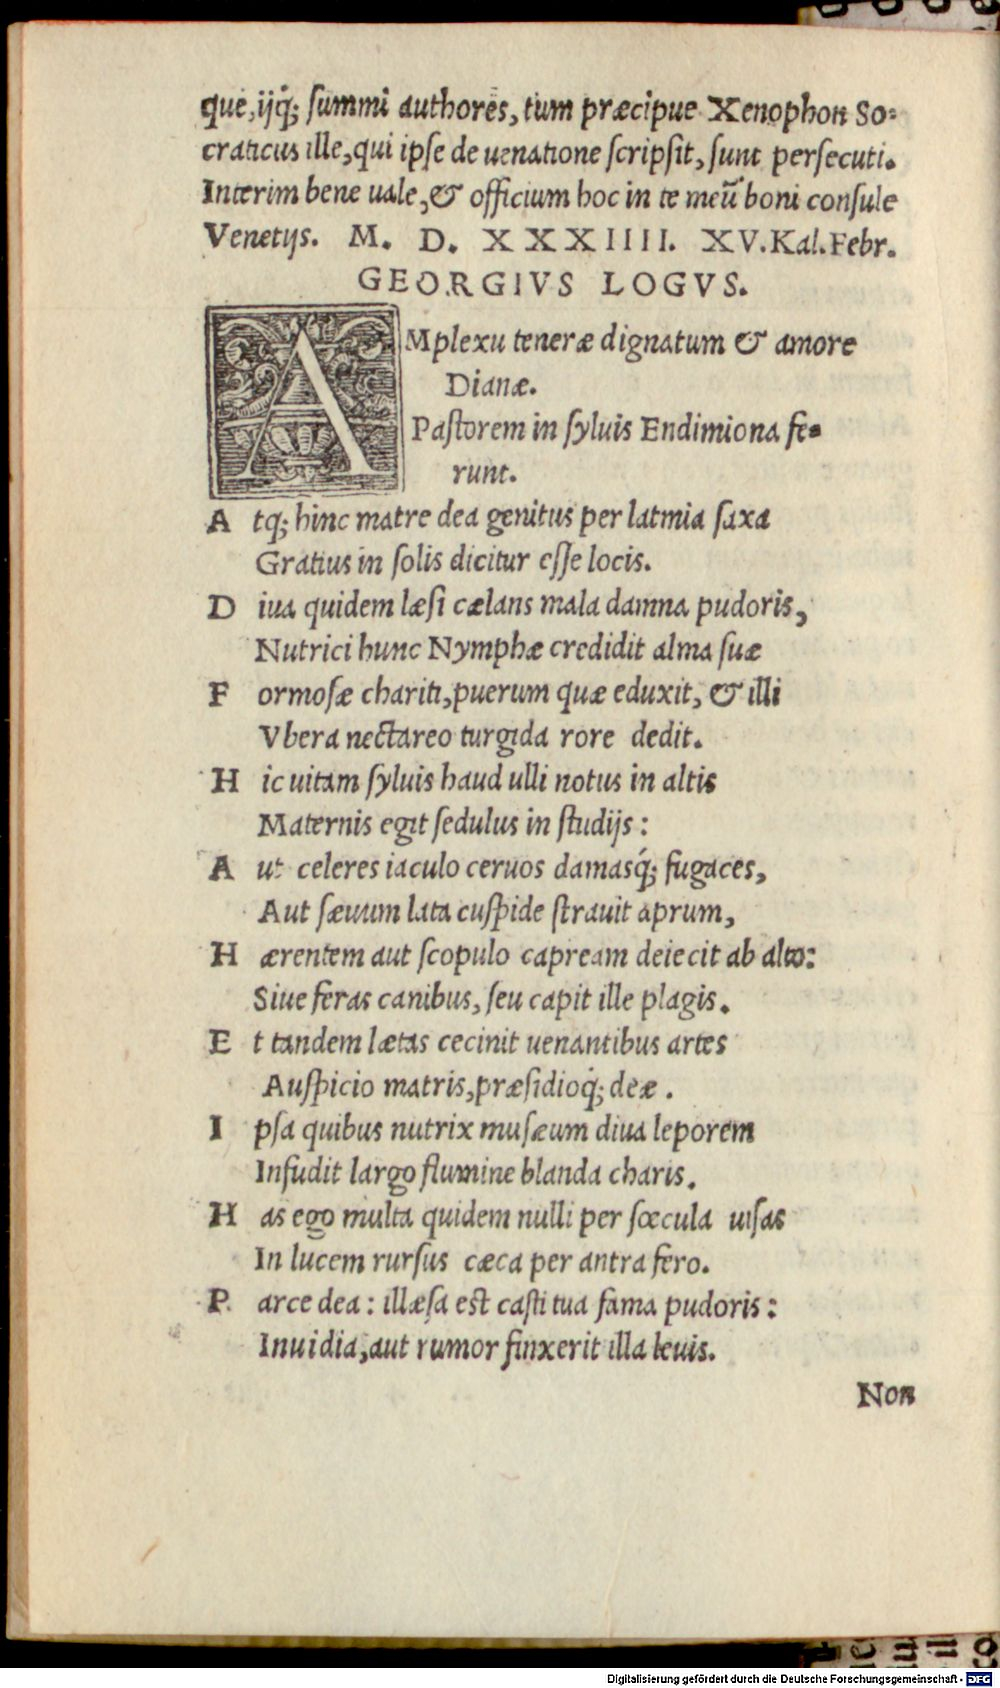 que, ijq́; ſummi authores, tum præcipue Xenophon So-
craticus ille, qui ipſe de uenatione ſcripſit, ſunt perſecuti.
Interim bene uale, & officium hoc in te meũ boni conſule
Venetijs. M. D. XXXIIII. XV. Kal. Febr.
GEORGIVS LOGVS.
AMplexu teneræ dignatum & amore
Dianæ.
Paſtorem in ſyluis Endimiona fe-
runt.
A tq; hinc matre dea genitus per latmia ſaxa
Gratius in ſolis dicitur eſſe locis.
D iua quidem læſi cælans mala damna pudoris,
Nutrici hunc Nymphæ credidit alma ſuæ
F ormoſæ chariti, puerum quæ eduxit, & illi
Vbera nectareo turgida rore dedit.
H ic uitam ſyluis haud ulli notus in altis
Maternis egit ſedulus in ſtudijs:
A ut celeres iaculo ceruos damasq́; fugaces,
Aut ſæuum lata cuſpide ſtrauit aprum,
H ærentem aut ſcopulo capream deiecit ab alto:
Siue feras canibus, ſeu capit ille plagis.
E t tandem lætas cecinit uenantibus artes
Auſpicio matris, præſidioq́; deæ.
I pſa quibus nutrix muſæum diua leporem
Infudit largo flumine blanda charis.
H as ego multa quidem nulli per ſœcula uiſas
In lucem rurſus cæca per antra fero.
P arce dea: illæſa est caſti tua fama pudoris:
Inuidia, aut rumor finxerit illa leuis.
Non
Digitalisierung gefördert durch die Deutsche Forschungsgemeinschaft - DFG